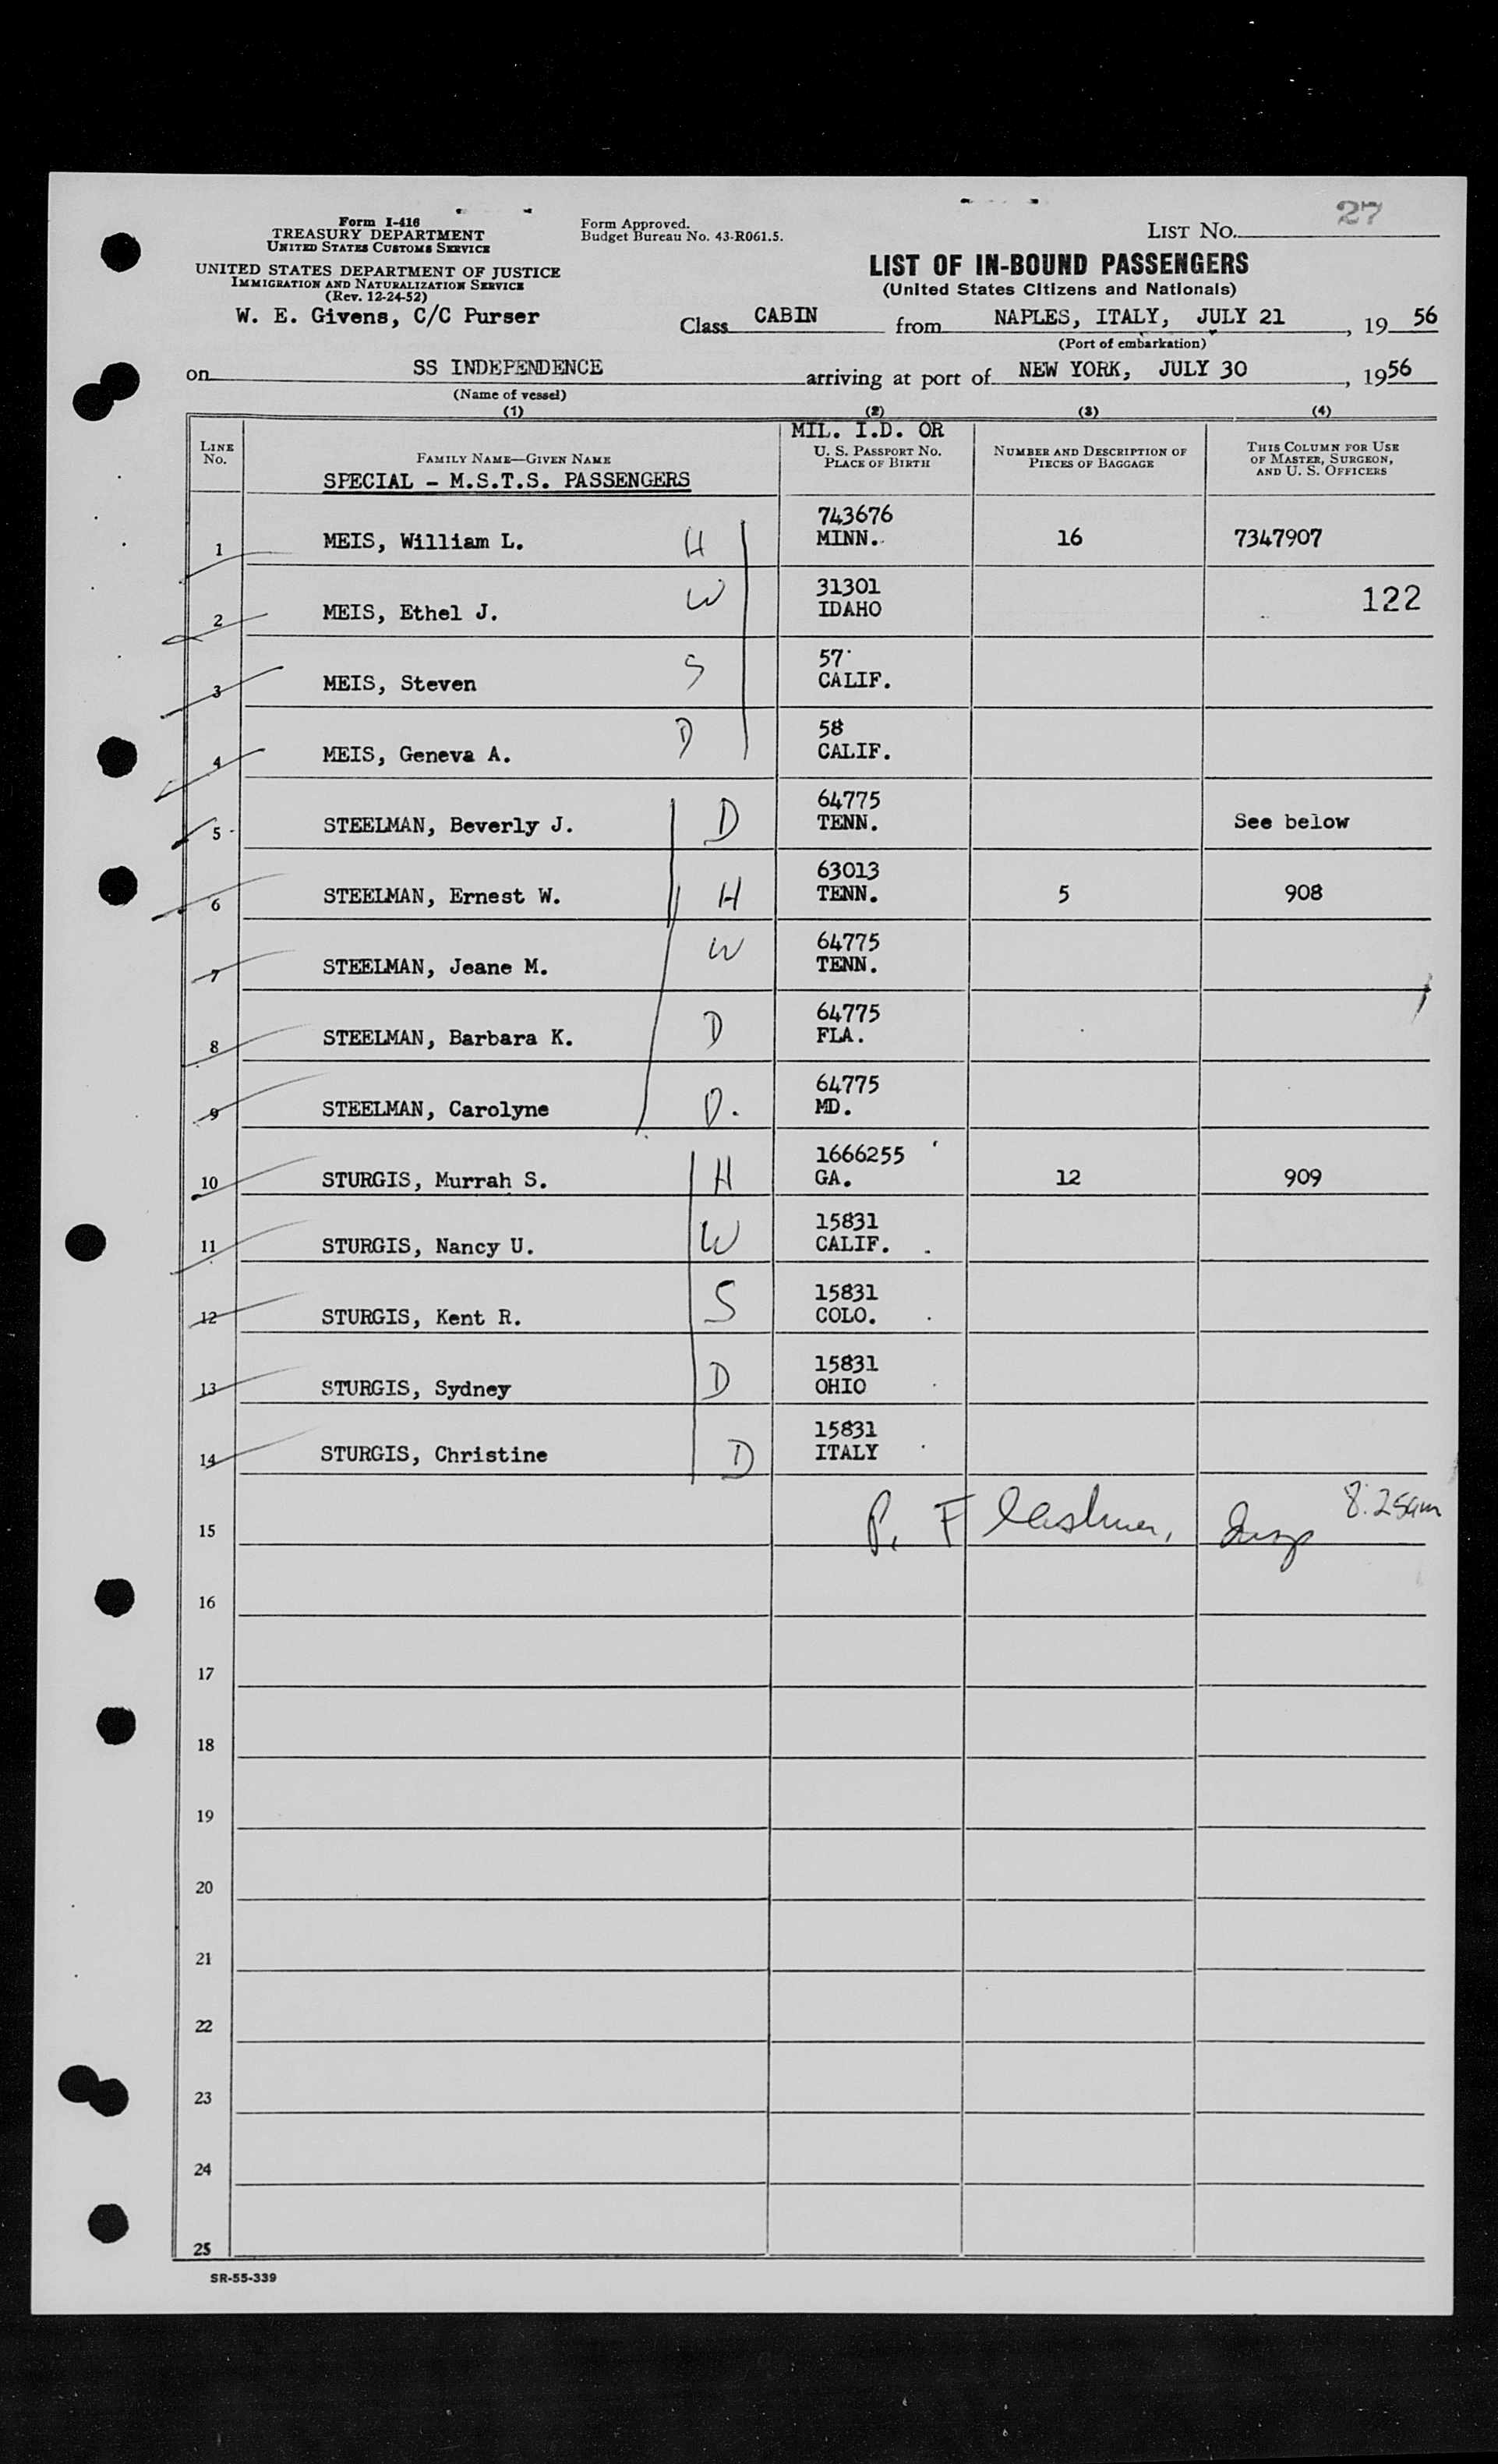 27
Form I-416
TREASURY DEPARTMENT
UNITED STATES CUSTOMS SERVICE
Form Approved.
Budget Bureau No. 43-R061.5.
LIST NO.
UNITED STATES DEPARTMENT OF JUSTICE
IMMIGRATION AND NATURALIZATION SERVICE
(Rev. 12-24-52)
LIST OF IN-BOUND PASSENGERS
(United States Citizens and Nationals)
W. E. Givens, C/C Purser
Class CABIN from NAPLES, ITALY, JULY 21, 19 56
(Port of embarkation)
on SS INDEPENDENCE arriving at port of NEW YORK, JULY 30, 1956
(Name of vessel)
(1) (2) (3) (4)
LINE NO.
FAMILY NAME—GIVEN NAME
SPECIAL - M.S.T.S. PASSENGERS
MIL. I.D. OR
U. S. PASSPORT NO.
PLACE OF BIRTH
NUMBER AND DESCRIPTION OF
PIECES OF BAGGAGE
THIS COLUMN FOR USE
OF MASTER, SURGEON,
AND U. S. OFFICERS
743676
1 MEIS, William L. H MINN. 16 7347907
31301 122
2 MEIS, Ethel J. W IDAHO
57
3 MEIS, Steven S CALIF.
58
4 MEIS, Geneva A. D CALIF.
64775
5 STEELMAN, Beverly J. D TENN. See below
63013
6 STEELMAN, Ernest W. H TENN. 5 908
64775
7 STEELMAN, Jeane M. W TENN.
64775
8 STEELMAN, Barbara K. D FLA.
64775
9 STEELMAN, Carolyne D. MD.
1666255
10 STURGIS, Murrah S. H GA. 12 909
15831
11 STURGIS, Nancy U. W CALIF.
15831
12 STURGIS, Kent R. S COLO.
15831
13 STURGIS, Sydney D OHIO
15831
14 STURGIS, Christine D ITALY
15 P. 8:25am
16
17
18
19
20
21
22
23
24
25
SR-55-339